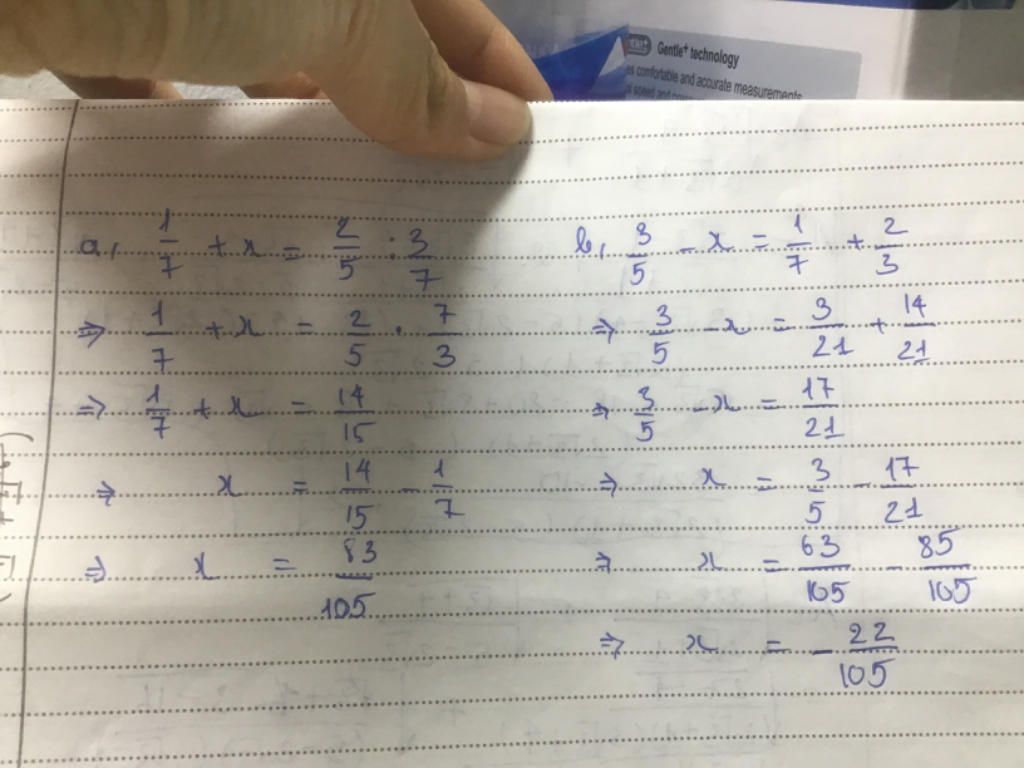 Gentle+ technology
comfortable and accurate measurements
speed and
a, 1/7 + x = 2/5 : 3/7
⇒ 1/7 + x = 2/5 . 7/3
⇒ 1/7 + x = 14/15
⇒ x = 14/15 - 1/7
⇒ x = 83/105
b, 3/5 - x = 1/7 + 2/3
⇒ 3/5 - x = 3/21 + 14/21
⇒ 3/5 - x = 17/21
⇒ x = 3/5 - 17/21
⇒ x = 63/105 - 85/105
⇒ x = - 22/105